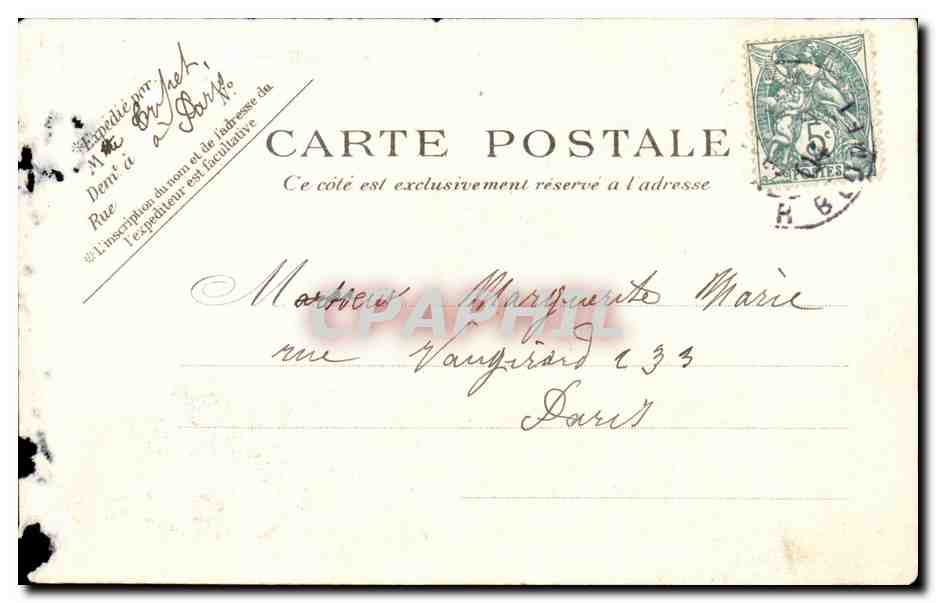 ※Expédié par
Mtte Orphet,
Demt à à Paris
Rue N°
※L'inscription du nom et de l'adresse de
l'expéditeur est facultative
CARTE POSTALE
Ce côté est exclusivement réservé a l'adresse
5c
POSTES
R BOUDET
Marguerite Marie
rue Vaugirard 233
Paris
CPAPHIL